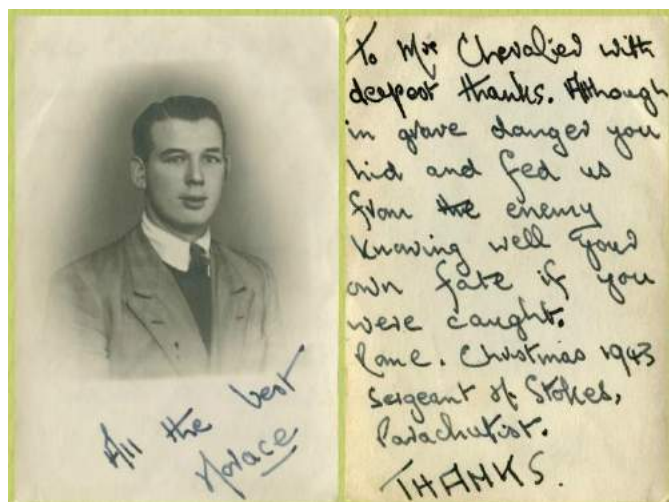 All the best
Horace
To Mrs Chevalier with
deepest thanks. Although
in grave danger you
hid and fed us
from the enemy
knowing well your
own fate if you
were caught.
Rome. Christmas 1943
Sergeant H. Stokes,
Parachutist.
THANKS.